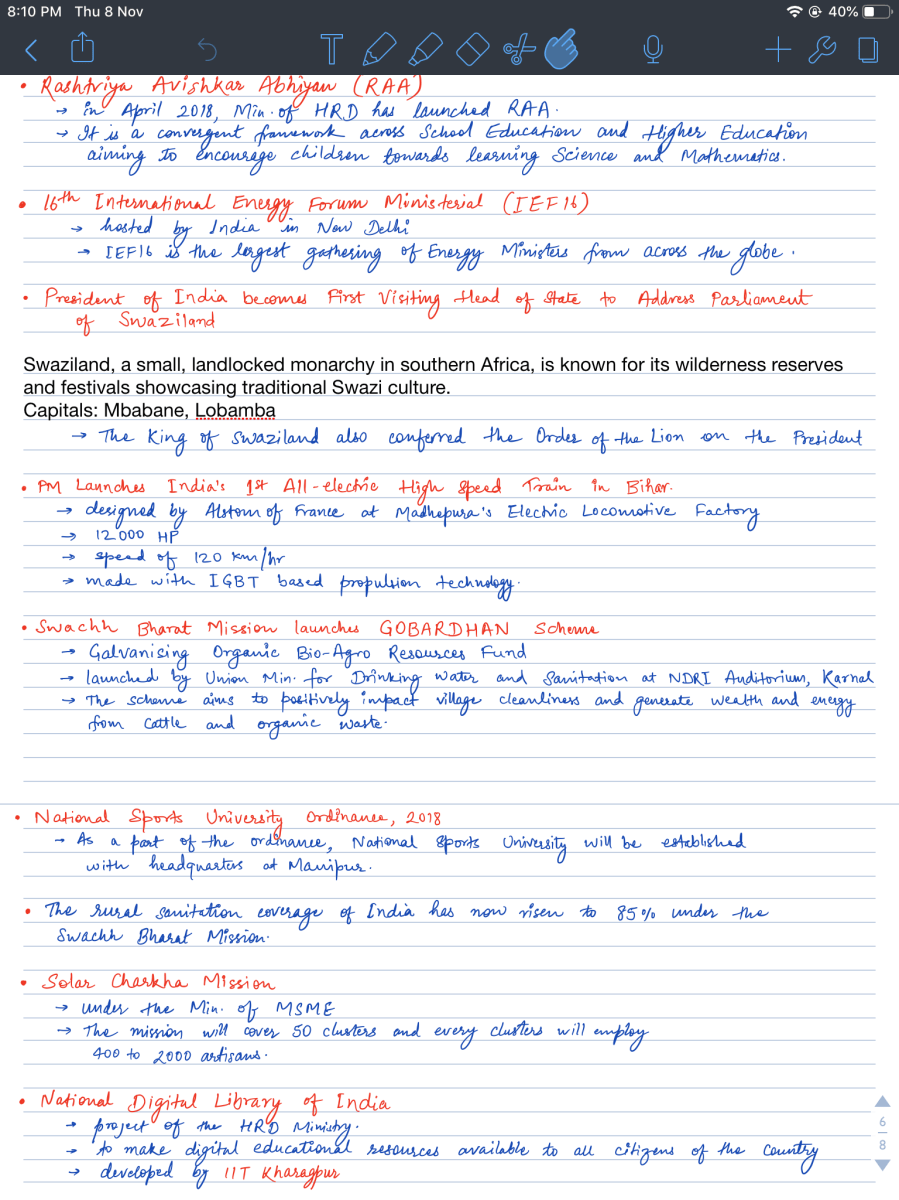 8:10 PM Thu 8 Nov 40%
T
• Rashtriya Avishkar Abhiyan (RAA)
→ in April 2018, Min. of HRD has launched RAA.
→ It is a convergent framework across School Education and Higher Education
aiming to encourage children towards learning Science and Mathematics.
• 16th International Energy Forum Ministerial (IEF16)
→ hosted by India in New Delhi
→ IEF16 is the largest gathering of Energy Ministers from across the globe.
• President of India becomes First Visiting Head of State to Address Parliament
of Swaziland
Swaziland, a small, landlocked monarchy in southern Africa, is known for its wilderness reserves
and festivals showcasing traditional Swazi culture.
Capitals: Mbabane, Lobamba
→ The King of Swaziland also conferred the Order of the Lion on the President
• PM Launches India's 1st All-electric High Speed Train in Bihar.
→ designed by Alstom of France at Madhepura's Electric Locomotive Factory
→ 12000 HP
→ speed of 120 km/hr
→ made with IGBT based propulsion technology.
• Swachh Bharat Mission launches GOBARDHAN Scheme
→ Galvanising Organic Bio-Agro Resources Fund
→ launched by Union Min. for Drinking water and Sanitation at NDRI Auditorium, Karnal
→ The scheme aims to positively impact village cleanliness and generate wealth and energy
from cattle and organic waste.
• National Sports University Ordinance, 2018
→ As a part of the ordinance, National Sports University will be established
with headquarters at Manipur.
• The rural sanitation coverage of India has now risen to 85% under the
Swachh Bharat Mission.
• Solar Charkha Mission
→ under the Min. of MSME
→ The mission will cover 50 clusters and every clusters will employ
400 to 2000 artisans.
• National Digital Library of India
→ project of the HRD Ministry.
→ to make digital educational resources available to all citizens of the country
→ developed by IIT Kharagpur
6
8